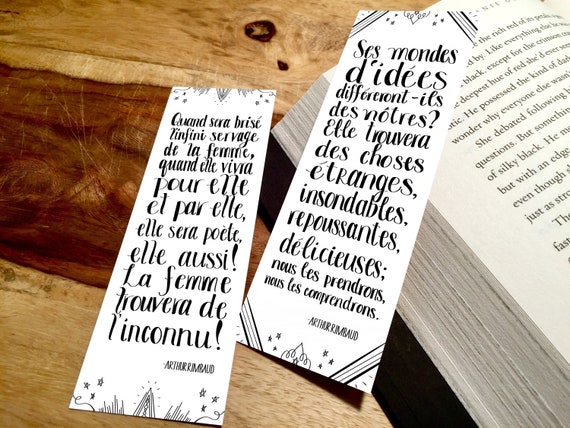 Quand sera brisé
l'infini servage
de la femme,
quand elle vivra
pour elle
et par elle,
elle sera poète,
elle aussi!
La femme
trouvera de
l'inconnu!
-ARTHUR RIMBAUD
Ses mondes
d'idées
différeront-ils
des nôtres?
Elle trouvera
des choses
étranges,
insondables,
repoussantes,
délicieuses;
nous les prendrons,
nous les comprendrons.
-ARTHUR RIMBAUD
the rich red of its
Like everything else h
black, except for the crimson
deepest hue of red she'd ever se
He possessed the kind of da
wonder why everyone else wan
She debated following
questions. But somethin
of silky black. He mo
but with an edge
even though s
just as stron
The